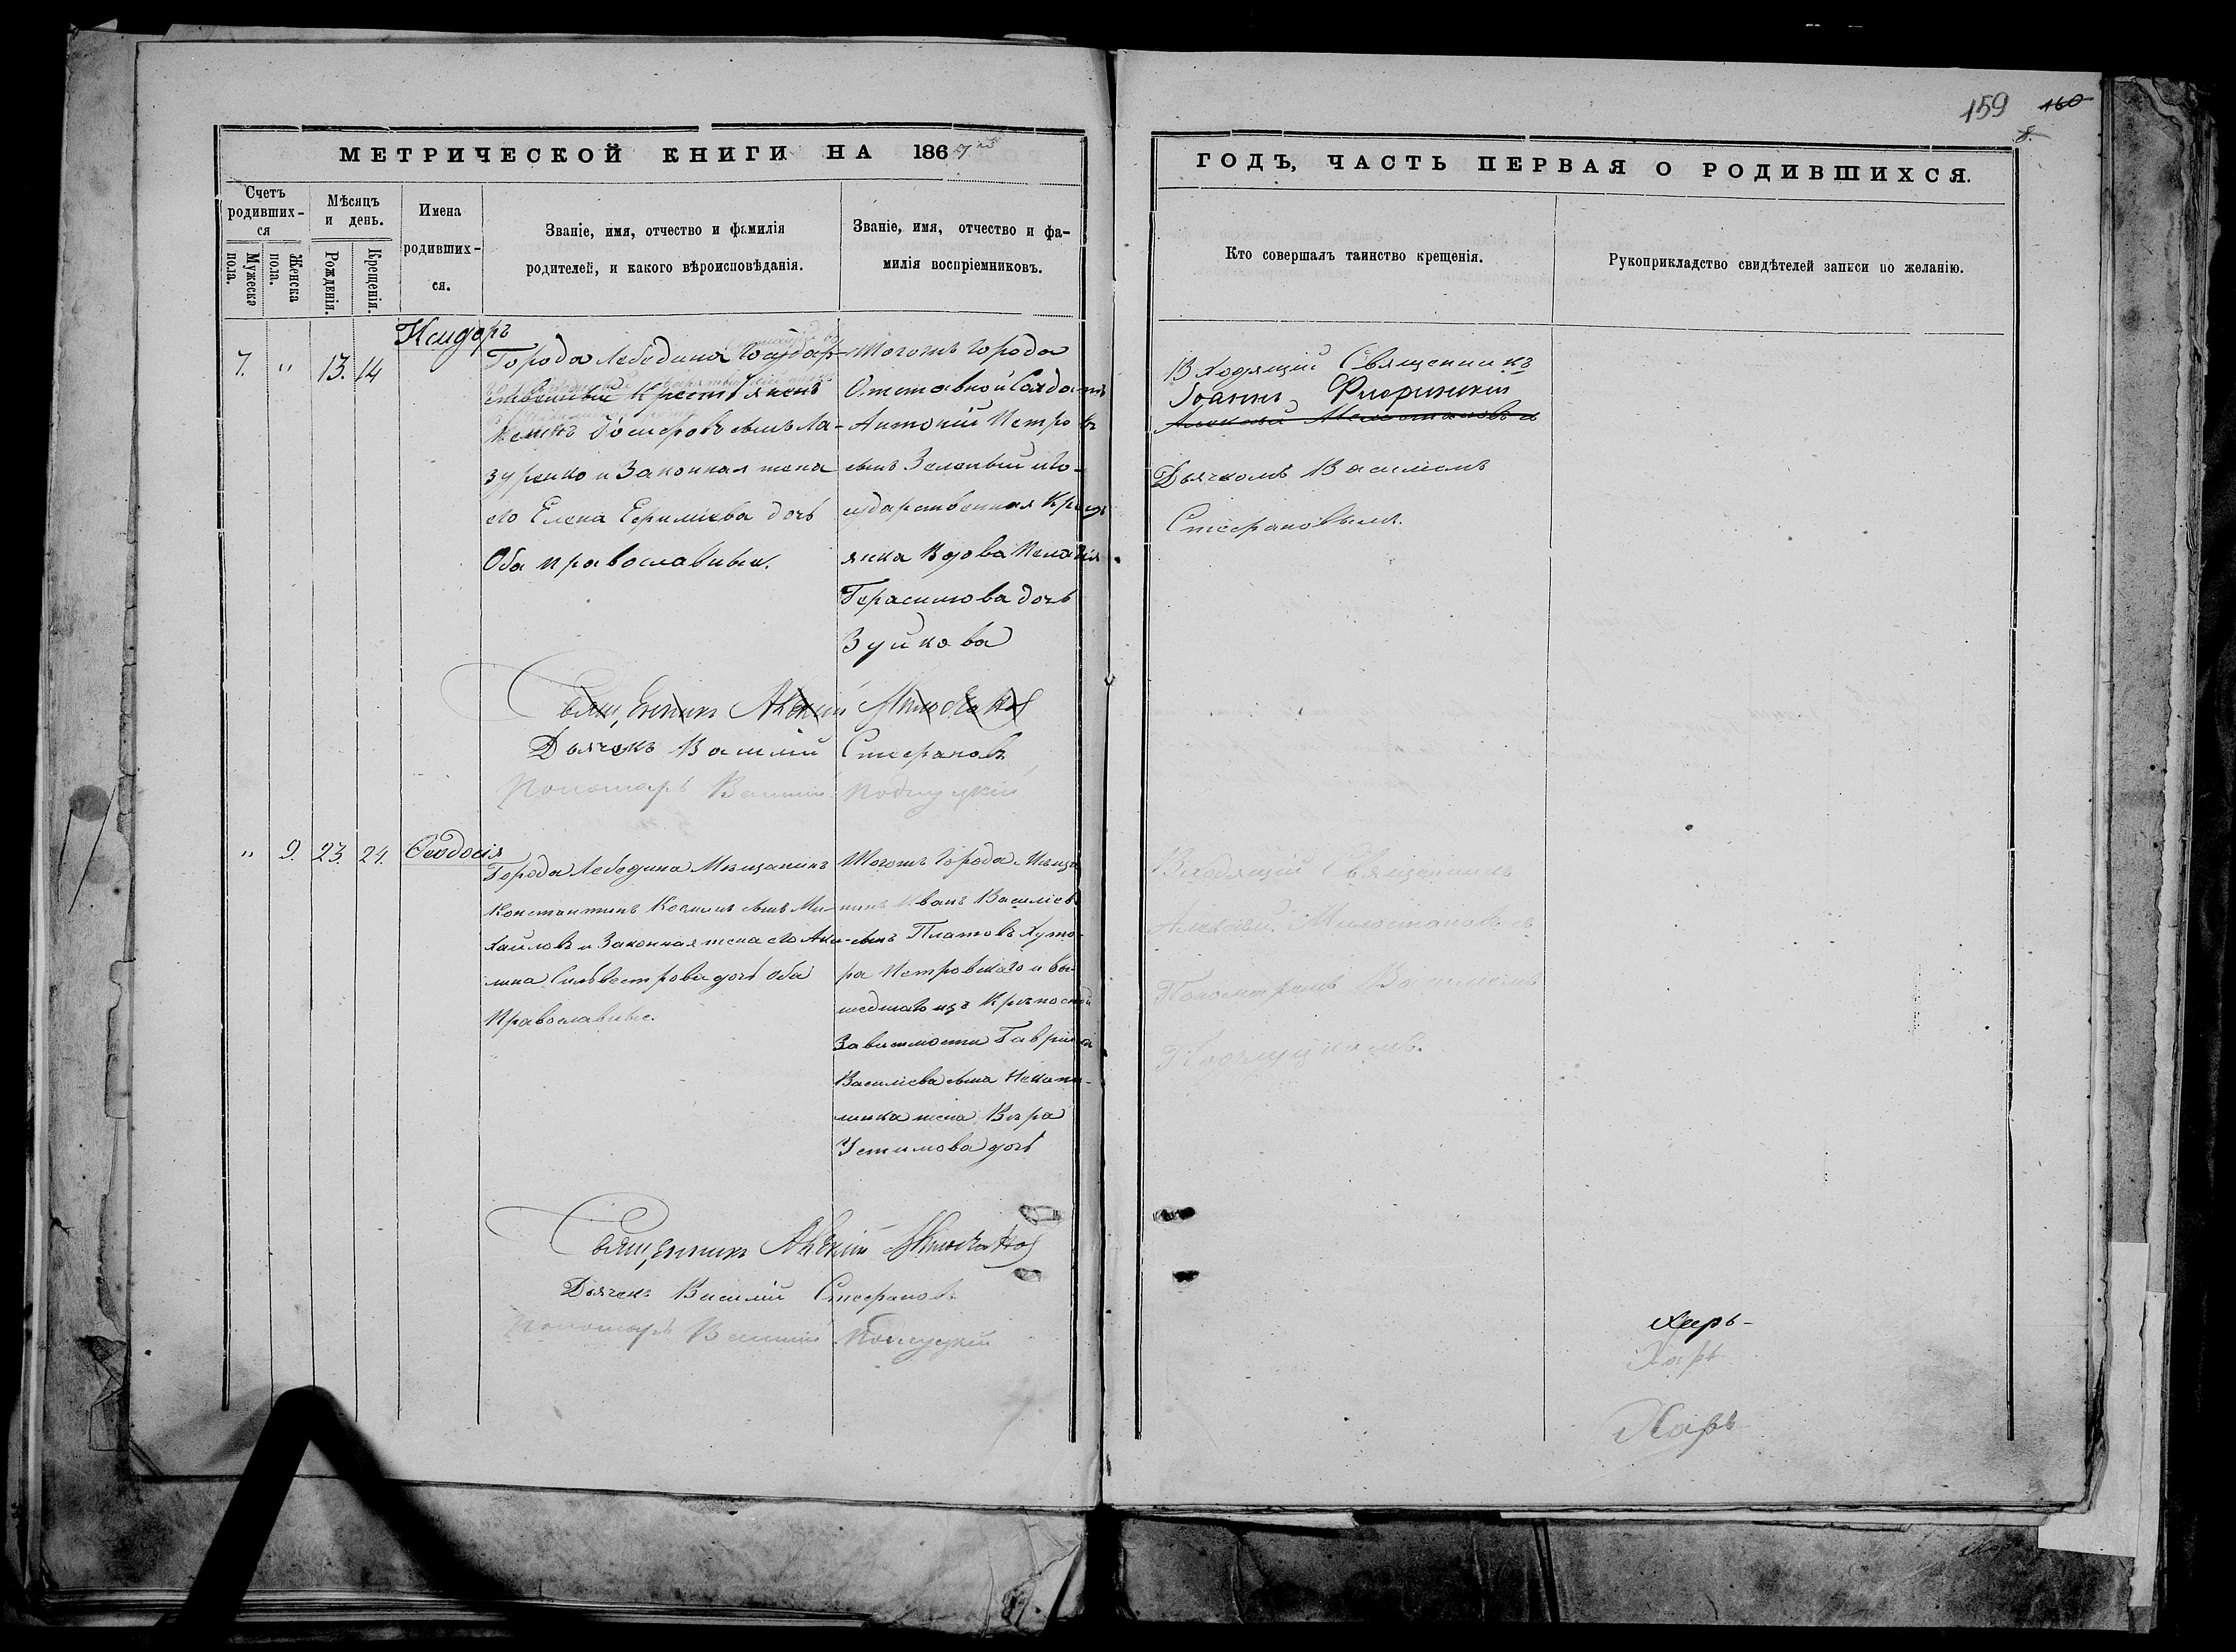 159 160
8.
МЕТРИЧЕСКОЙ КНИГИ НА 1867й
ГОДЪ, ЧАСТЬ ПЕРВАЯ О РОДИВШИХСЯ.
Счетъ родивших-ся
Мужеска пола.
Женска пола.
Мѣсяцъ и день.
Рожденія.
Крещенія.
Имена родивших-ся.
Званіе, имя, отчество и фамилія
родителей, и какого вѣроисповѣданія.
Званіе, имя, отчество и фа-
милія воспріемниковъ.
Кто совершалъ таинство крещенія.
Рукоприкладство свидѣтелей записи по желанію.
7. " 13. 14
Исидоръ
Города Лебедина Государ-
ственный Крестьянинъ
сынъ Ла-
зуренко и Законная жена
его Елена Ефиміева дочь
Оба православные.
Тогожъ Города
Отставной Солдатъ
Антоній Петровъ
сынъ Зеленый и Го-
сударственная Крестъ
янка Вдова Пелагія
Герасимова дочь
Зуйкова
Входящій Священникъ
Іоаннъ Флоринскій
Алексѣй Милостановъ съ
Дьячкомъ Василіемъ
Стефановымъ.
Священникъ Алексій Милостановъ
Дьячекъ Василій Стефановъ
Пономарь Василій Подлуцкій
" 9. 23. 24. Ѳеодосія
Города Лебедина Мѣщанинъ
Константинъ Козминъ сынъ Ми-
хайловъ и Законная жена его Аки-
лина Сильвестрова дочь оба
Православные.
Тогожъ Города Мѣща-
нинъ Иванъ Василіевъ
сынъ Платовъ Хуто-
ра Петровскаго и вы-
шедшаго изъ Крѣпостной
Зависимости Гавріила
Василіева сына
жена Вѣра
Устимова дочь
Входящій Священникъ
Алексѣй Милостановъ съ
Пономаремъ Василіемъ
Подлуцкимъ.
Священникъ Алексій Милостановъ
Дьячекъ Василій Стефановъ
Пономарь Василій Подлуцкій
Харь-
Харь
Харь